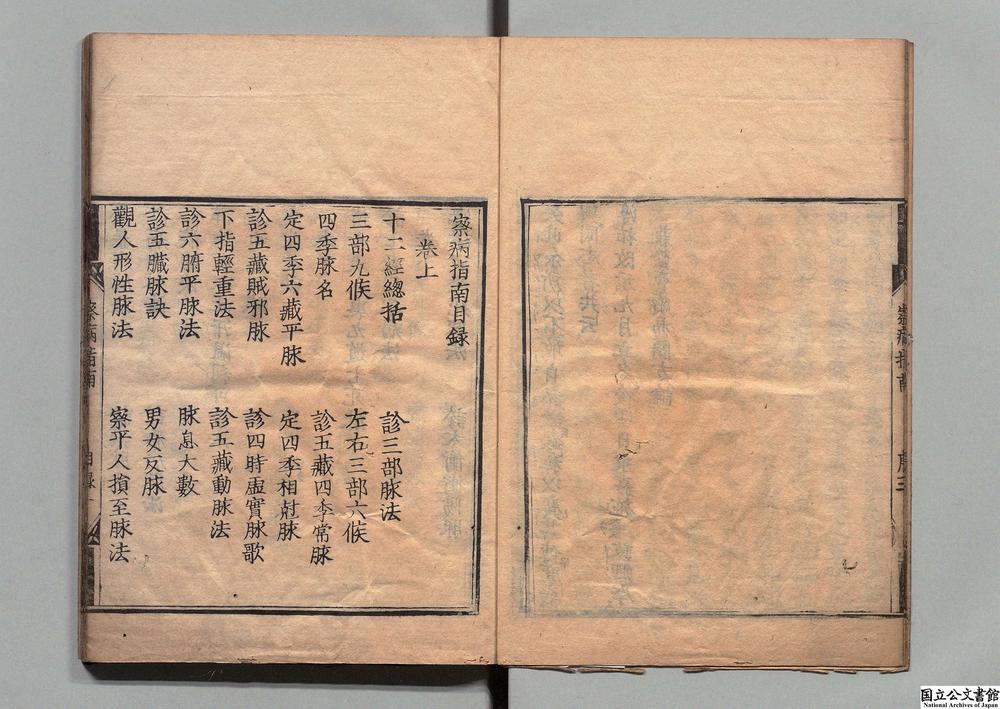 察病指南目録
卷上
十二經總括　診三部脉法
三部九候　左右三部六候
四季脉名　診五藏四季常脉
定四季六藏平脉　定四季相尅脉
診五藏賊邪脉　診四時虛實脉歌
下指輕重法　診五藏動脉法
診六腑平脉法　脉息大數
診五臟脉訣　男女反脉
觀人形性脉法　察平人損至脉法
察病指南　目録
察病指南　序三
国立公文書館
National Archives of Japan